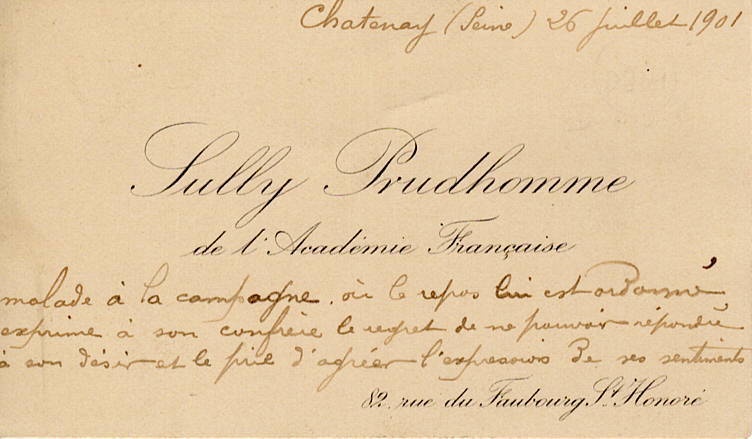 Chatenay (Seine) 26 juillet 1901
Sully Prudhomme
de l'Académie Française
malade à la campagne, où le repos lui est ordonné,
exprime à son confrère le regret de ne pouvoir répondre
à son désir et le prie d'agréer l'expression de ses sentiments
82, rue du Faubourg St. Honoré